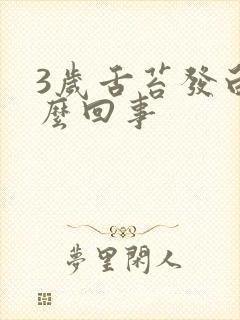 3歲舌苔發白
麼回事
夢里閑人